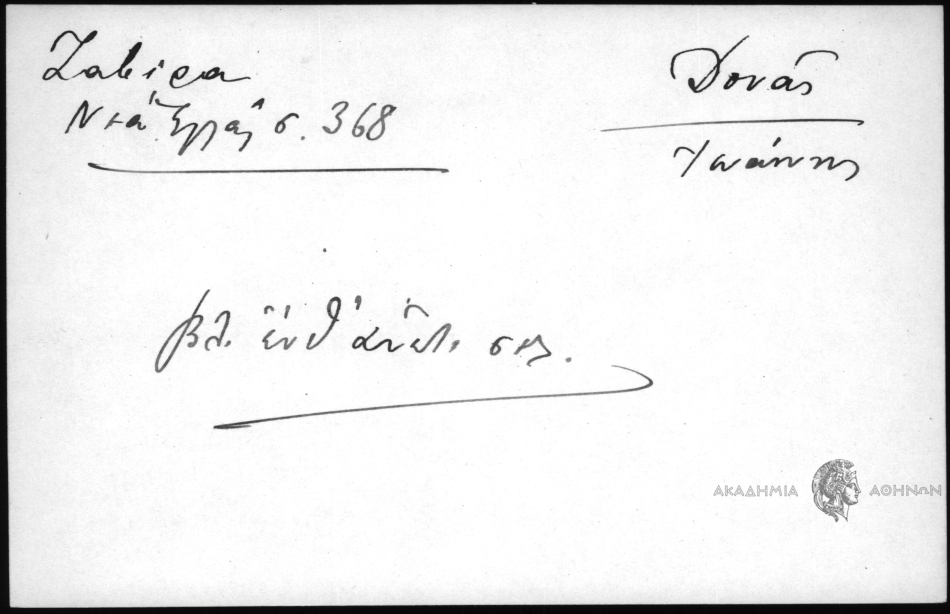 Ζαβίρα
Νέα Ἑλλάς σ. 368
Δονάς
Ἰωάννης
βλ. ἔνθ ἀνωτ. σελ.
ΑΚΑΔΗΜΙΑ ΑΘΗΝΩΝ